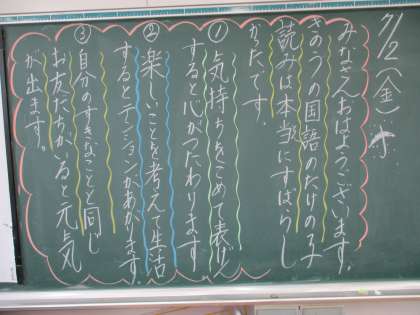 7/2(金)
みなさんおはようございます。
きのうの国語のたけのこ
読みは本当にすばらし
かったです。
①気持ちをこめて表げん
すると心がつたわります
②楽しいことを考えて生活
するとテンションがあがります。
③自分のすきなことと同じ
お友だちがいると元気
が出ます。